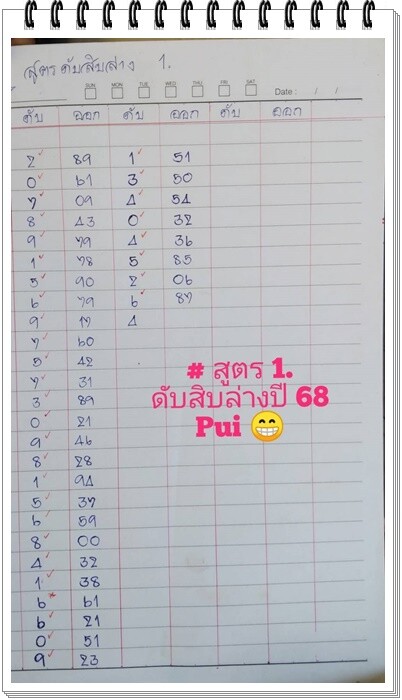 สูตรดับสิบล่าง 1.
SUN MON TUE WED THU FRI SAT
Date : / /
ดับ ออก ดับ ออก ดับ ออก
2 89 1 51
0 61 3 50
7 09 4 54
8 43 0 32
9 79 4 36
1 78 5 85
5 90 2 06
6 79 6 87
9 17 4
7 60
5 42
7 31
3 89
0 21
9 46
8 28
1 94
5 37
6 59
8 00
4 32
1 38
6 61
6 21
0 51
9 23
# สูตร 1.
ดับสิบล่างปี 68
Pui 😁